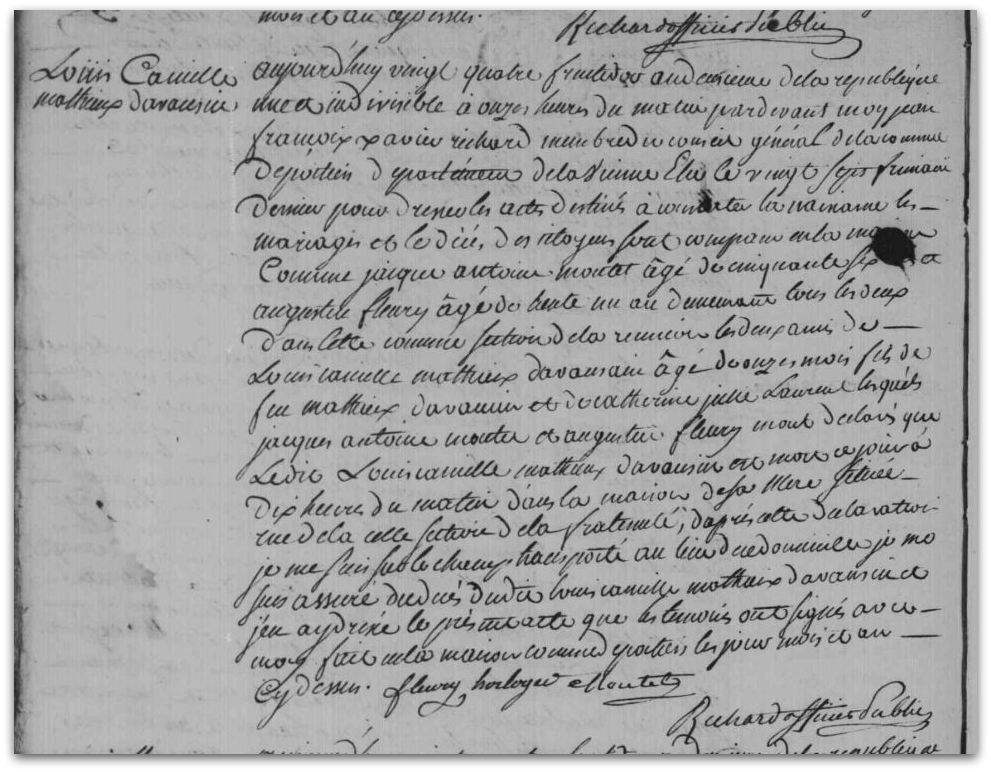 mois et an cy dessus.
Richard officier Public
Louis Camille
mathieux davaussin
aujourd'huy vingt quatre fructidor an deuxieme de la republique
une et indivisible a onze heures du matin pardevant moy jean
françoix xavier richard membre du conseil général de la commune
de poitiers departement de la Vienne Elu le vingt sept frimaire
dernier pour dresser les actes destinés a constater la naissance les
mariages et le décés des citoyens sont comparu en la maison
Commune jacque antoine moutet âgé de cinquante six et
augustin fleury âgé de trente un an demeurant tous les deux
dans cette commune section de la reunion les deux amis de
Louis camille mathieux davaussin âgé de onze mois fils de
feu mathieux davaussin et de catherine julie Laurent lesquels
jacques antoine moutet et augustin fleury m'ont declaré que
Ledit Louis camille mathieux davaussin est mort ce jour a
dix heures du matin dans la maison de sa Mere située
rue de la celle section de la fraternité, d'aprés cette declaration
je me suis sur le champ transporté au lieu de ce domicille je me
suis assuré du décés dudit louis camille mathieux davaussin et
j'en ay dressé le présent acte que les temoins ont signés avec
moy fait en la maison commune de poitiers les jour mois et an
Cy dessus. fleury horloger Moutet
Richard officier Public